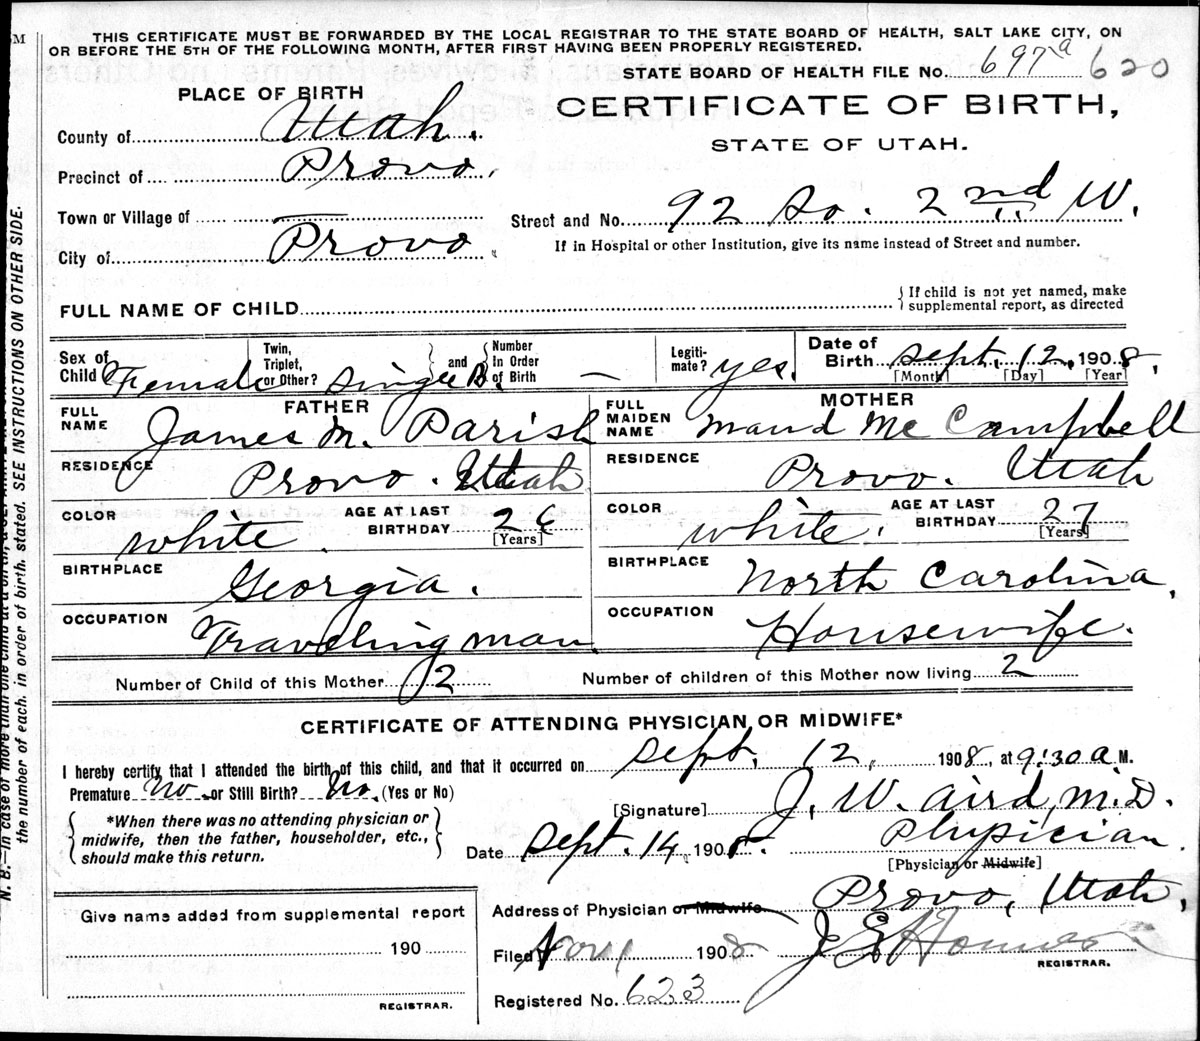 THIS CERTIFICATE MUST BE FORWARDED BY THE LOCAL REGISTRAR TO THE STATE BOARD OF HEALTH, SALT LAKE CITY, ON
OR BEFORE THE 5TH OF THE FOLLOWING MONTH, AFTER FIRST HAVING BEEN PROPERLY REGISTERED.
STATE BOARD OF HEALTH FILE No. 697a 620
PLACE OF BIRTH
CERTIFICATE OF BIRTH,
STATE OF UTAH.
County of Utah.
Precinct of Provo.
Town or Village of —
Street and No. 92 So. 2nd W.
City of Provo.
If in Hospital or other Institution, give its name instead of Street and number.
FULL NAME OF CHILD
{If child is not yet named, make
supplemental report, as directed
Sex of Child Female
Twin, Triplet, or Other? Single
and Number In Order of Birth —
Legiti-mate? yes.
Date of Birth Sept. 12, 1908.
[Month] [Day] [Year]
FATHER
FULL NAME James M. Parish
RESIDENCE Provo. Utah
COLOR white.
AGE AT LAST BIRTHDAY 26
[Years]
BIRTHPLACE Georgia.
OCCUPATION Traveling man.
MOTHER
FULL MAIDEN NAME Maud McCampbell
RESIDENCE Provo. Utah
COLOR white.
AGE AT LAST BIRTHDAY 27
[Years]
BIRTHPLACE North Carolina.
OCCUPATION Housewife.
Number of Child of this Mother 2
Number of children of this Mother now living 2
CERTIFICATE OF ATTENDING PHYSICIAN OR MIDWIFE*
I hereby certify that I attended the birth of this child, and that it occurred on Sept. 12, 1908, at 9:30 a.M.
Premature No or Still Birth? No. (Yes or No)
[Signature] J. W. Aird, M.D.
{*When there was no attending physician or
midwife, then the father, householder, etc.,
should make this return.}
Date Sept. 14, 1908.
Physician.
[Physician or Midwife]
Address of Physician or Midwife Provo, Utah.
Give name added from supplemental report
190
REGISTRAR.
Filed 1908
REGISTRAR.
Registered No. 623
N. B.—In case of more than one child at a birth,
the number of each, in order of birth, stated. SEE INSTRUCTIONS ON OTHER SIDE.